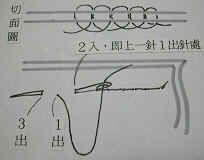 切面圖
2入，即上一針1出針處
3出
1出